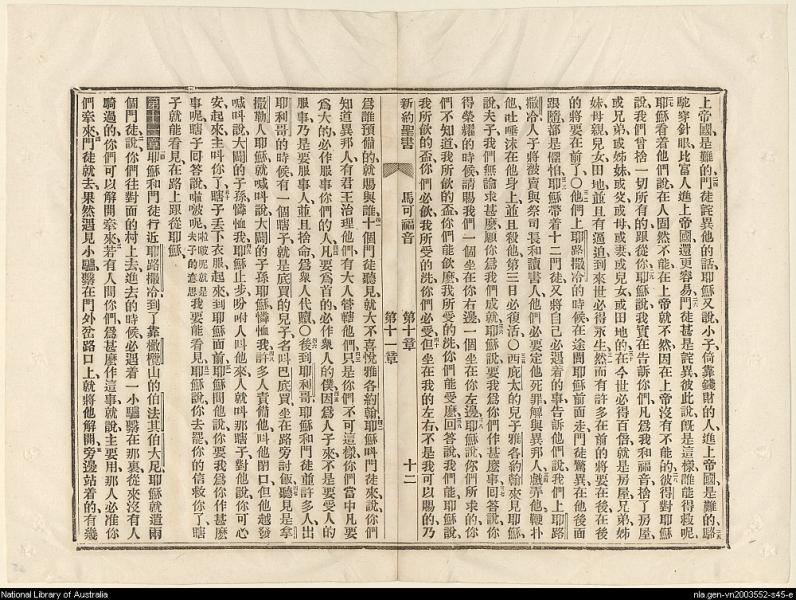 上帝國、是難的、門徒詫異他的話、耶穌又說、小子、倚靠錢財的人、進上帝國是難的、駱
駝穿針眼、比富人進上帝國、還更容易、門徒甚是詫異、彼此說、旣是這樣、誰能得救呢、
耶穌看着他們說、在人固然不能、在上帝就不然、因在上帝沒有不能的、彼得對耶穌
說、我們曾捨一切所有的、跟從你、耶穌說、我實在告訴你們、凡爲我和福音、捨了房屋、
或兄弟、或姊妹、或父、或母、或妻、或兒女、或田地的、在今世必得百倍、就是房屋兄弟姊
妹母親兒女田地、並且有逼迫、到來世必得永生、然而有許多在前的將要在後、在後
的將要在前了、〇他們上耶路撒冷的時候、在途間耶穌前面走、門徒驚異、在他後面
跟隨、都是懼怕、耶穌帶着十二門徒、又將自己必遇着的事告訴他們說、我們上耶路
撒冷、人子將被賣與祭司長和讀書人、他們必要定他死罪、解與異邦人、戲弄他、鞭扑
他、吐唾沫在他身上、並且殺他、第三日必復活、〇西庇太的兒子雅各約翰來見耶穌、
說、夫子、我們無論求甚麽、願你爲我們成就、耶穌說、要我爲你們作甚麽事、回答說、你
得榮耀的時候、請賜我們一個坐在你右邊、一個坐在你左邊、耶穌說、你們所求的、你
們不知道、我所飲的盃、你們能飲麽、我所受的洗、你們能受麽、回答說、我們能、耶穌說、
我所飲的盃、你們必飲、我所受的洗、你們必受、但坐在我的左右、不是我可以賜的、乃
新約聖書
馬可福音
第十章
第十一章
十二
爲誰預備的、就賜與誰、十個門徒聽見、就大不喜悅雅各約翰、耶穌叫門徒來、說、你們
知道異邦人、有君王治理他們、有大人管轄他們、只是你們不可這樣、你們當中、凡要
爲大的、必作服事你們的人、凡要爲首的、必作衆人的僕、因爲人子來、不是要受人的
服事、乃是要服事人、並且捨命、爲衆人代贖、〇後到耶利哥、耶穌和門徒並許多人、出
耶利哥的時候、有一個瞎子、就是底買的兒子、名叫巴底買、坐在路旁討飯、聽見是拿
撒勒人耶穌、就喊叫說、大闢的子孫耶穌、憐恤我、許多人責備他、叫他閉口、但他越發
喊叫說、大闢的子孫、憐恤我、耶穌止步、吩咐人叫他來、人就叫那瞎子、對他說、你可心
安、起來、主叫你了、瞎子丟下衣服、起來到耶穌面前、耶穌問他說、你要我爲你作甚麽
事呢、瞎子回答說、啦啵呢、啦啵呢就是夫子的意思我要能看見、耶穌說、你去罷、你的信救你了、瞎
子就能看見、在路上跟從耶穌、
第十一章耶穌和門徒行近耶路撒冷、到了靠橄欖山的伯法其伯大尼、耶穌就遣兩
個門徒、說、你們往對面的村上去、進去的時候、必遇着一小驢繫在那裏、從來沒有人
騎過的、你們可以解開牽來、若有人問你們爲甚麽作這事、就說、主要用、那人必准你
們牽來、門徒就去、果然遇見小驢繫在門外岔路口上、就將他解開、旁邊站着的有幾
National Library of Australia
nla.gen-vn2003552-s45-e